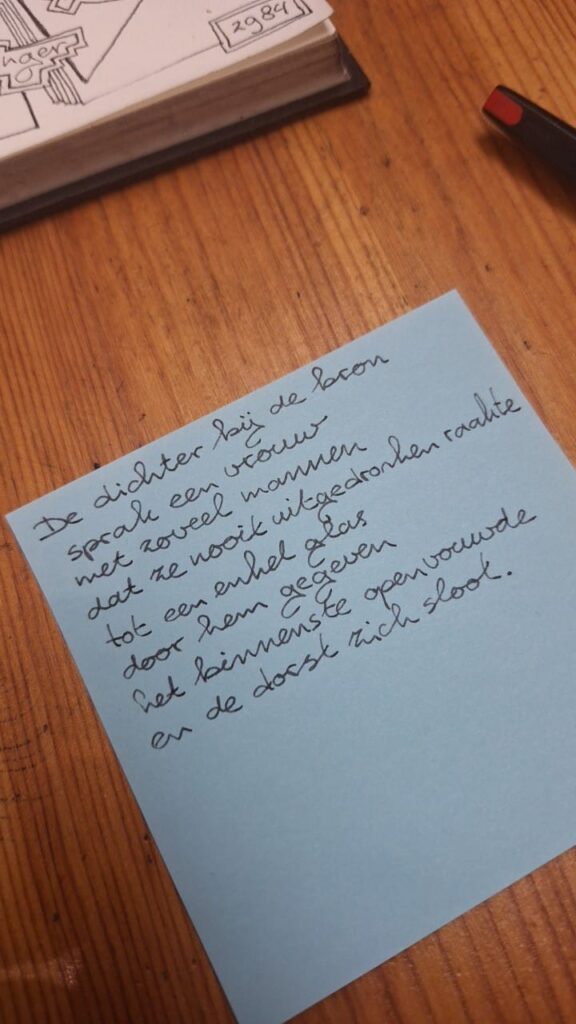 2984
De dichter bij de bron
sprak een vrouw
met zoveel mannen
dat ze nooit uitgedronken raakte
tot een enkel glas
door hem gegeven
het binnenste openvouwde
en de dorst zich sloot.